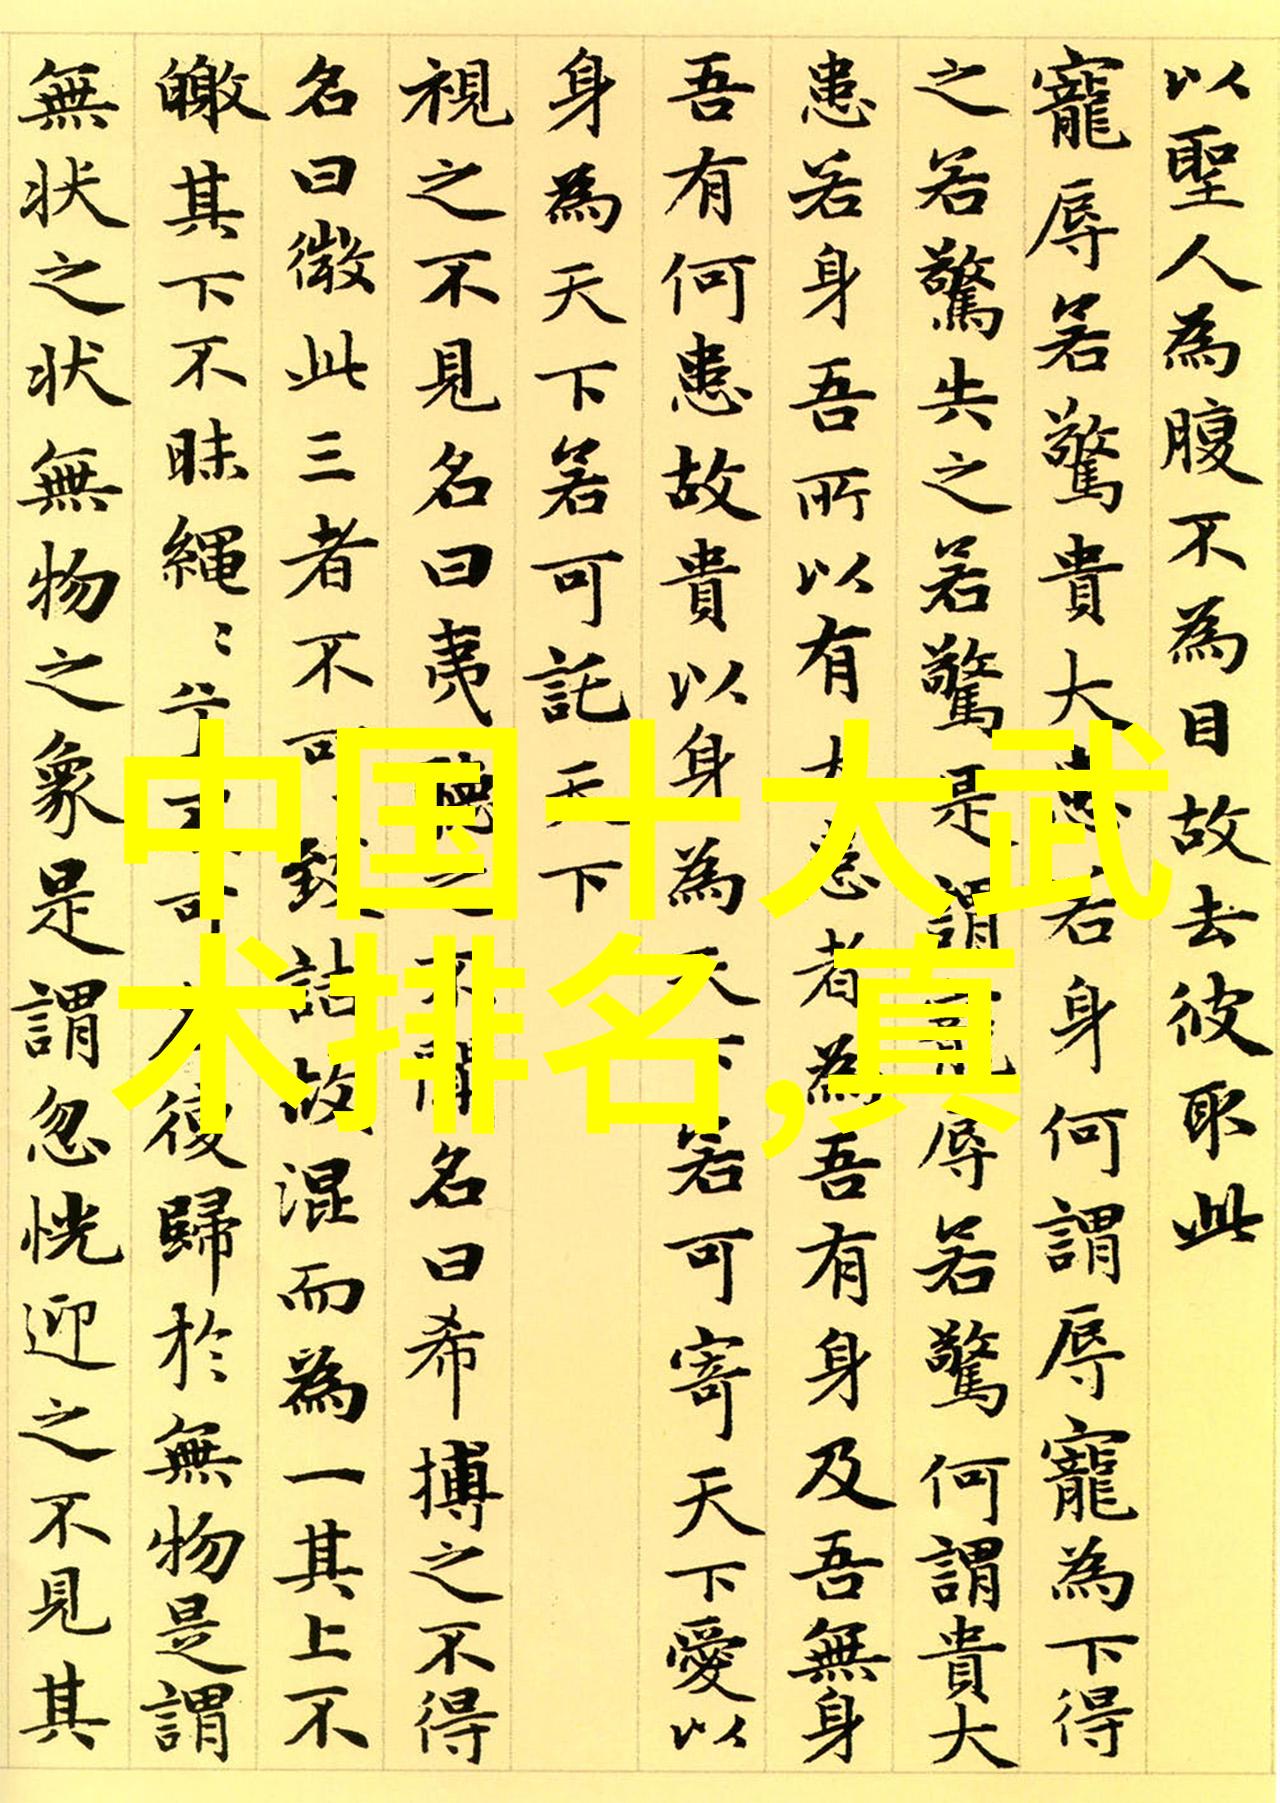 以聖人為腹不為目故去彼取此
寵辱若驚貴大患若身何謂辱寵為下得
之若驚失之若驚是謂寵辱若驚何謂貴大
患若身吾所以有大患者為吾有身及吾無身
吾有何患故貴以身為天下若可寄天下愛以
身為天下若可託天下
視之不見名曰夷聽之不聞名曰希搏之不得
名曰微此三者不可致詰故混而為一其上不
皦其下不昧繩〻兮不可名復歸於無物是謂
無状之状無物之象是謂忽恍迎之不見其
中国十大武
术排名,真